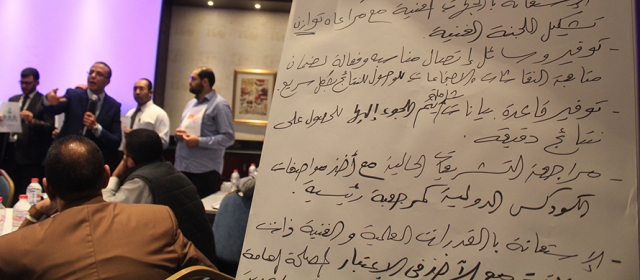 الإستعانة بالجهات المعنية مع مراعاة توازن
تشكيل اللجنة الفنية.
- توفير وسائل إتصال مناسبة وفعالة لضمان
متابعة النقاشات والاجتماعات للوصول للنتائج بشكل سريع.
- توفير قاعدة بيانات شاملة يتم اللجوء إليها للحصول على
نتائج دقيقة.
- مراجعة التشريعات الحالية مع أخذ مواصفات
الكودكس الدولية كمرجعية رئيسية
- الإستعانة بالقدرات العلمية و الفنية ذات
الأخذ في الاعتبار المصلحة العامة